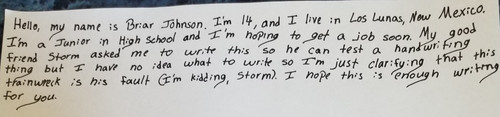 Hello, my name is Briar Johnson. I'm 14, and I live in Los Lunas, New Mexico.
I'm a Junior in High School and I'm hoping to get a job soon. My good
friend Storm asked me to write this so he can test a handwriting
thing but I have no idea what to write so I'm just clarifying that this
trainwreck is his fault (I'm kidding, Storm). I hope this is enough writing
for you.